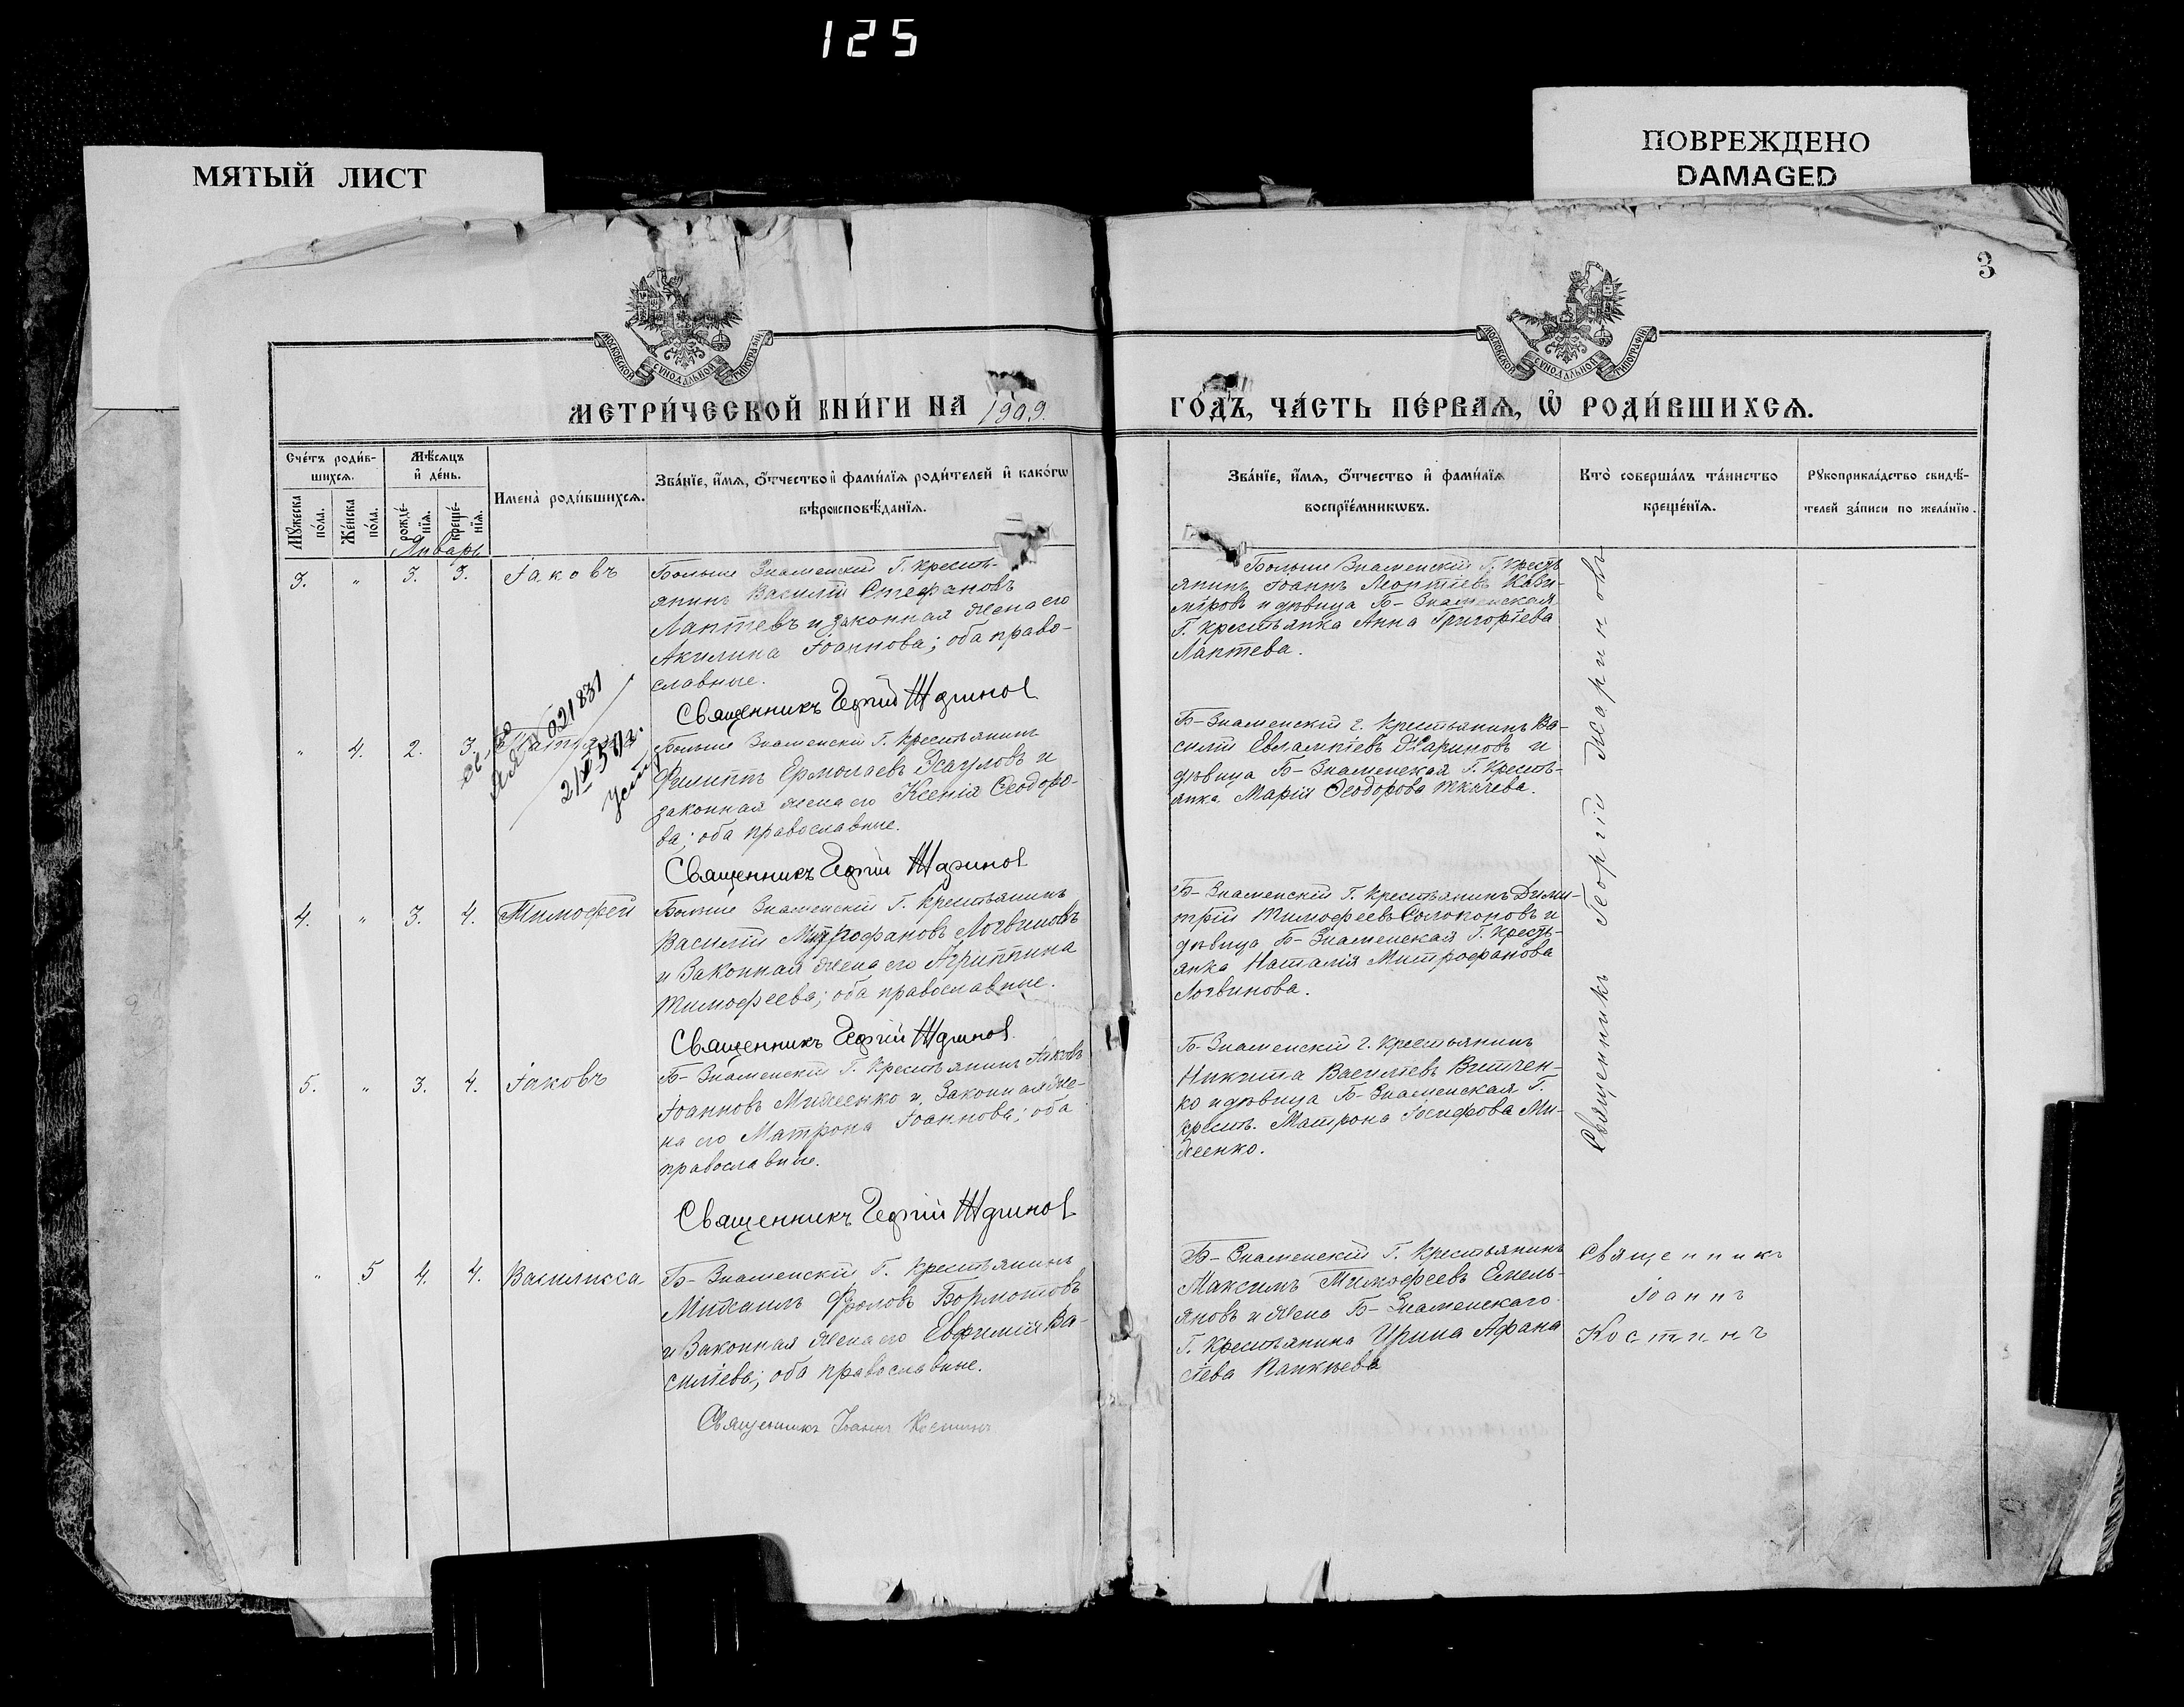 125
МЯТЫЙ ЛИСТ
ПОВРЕЖДЕНО
DAMAGED
3
МОСКОВСКОЙ СУНОДАЛЬНОЙ ТИПОГРАФІИ
МОСКОВСКОЙ СУНОДАЛЬНОЙ ТИПОГРАФІИ
МЕТРИ́ЧЕСКОЙ КНИ́ГИ НА 1909.
ГО́ДЪ, ЧА́СТЬ ПЕ́РВАѦ, Ѽ РОДИ́ВШИХСѦ.
Сче́тъ роди́в-
шихсѧ.
Мꙋжеска по́ла.
Же́нска по́ла.
Мѣ́сѧцъ
и҆ де́нь.
рожде́-
нїѧ.
креще́-
нїѧ.
Имена̀ роди́вшихсѧ.
Зва́нїе, и҆́мѧ, ѻ҆́тчество и҆ фами́лїѧ роди́телей и҆ како́гѡ
вѣроисповѣ́данїѧ.
Зва́нїе, и҆́мѧ, ѻ҆́тчество и҆ фами́лїѧ
воспрїе́мникѡвъ.
Кто̀ соверша́лъ та́инство
креще́нїѧ.
Рꙋкоприкла́дство свидѣ́-
телей за́писи по жела́нїю.
Январь
3. " 3. 3. Іаковъ
Больше Знаменскій Г. кресть-
янинъ Василій Стефановъ
Лаптевъ и законная жена его
Акилина Іоаннова; оба право-
славные.
Священникъ Георгій Жаринов
Больше Знаменскій Г. Кресть
янинъ Іоаннъ Леонтіевъ Кази-
міровъ и дѣвица Б-Знаменская
Г. крестьянка Анна Григоріева
Лаптева.
" 4. 2. 3. Татіана
021831
21/V-50г.
Больше Знаменскій Г. Крестьянинъ
Филиппъ Ермолаевъ Есауловъ и
законная жена его Ксенія Ѳеодоро-
ва; оба православные.
Священникъ Георгій Жаринов
Б-Знаменскій г. крестьянинъ Ва-
силій Евлампіевъ Жариновъ и
дѣвица Б-Знаменская Г. Кресть-
янка Марія Ѳеодорова Ткачева.
4. " 3. 4. Тимофей
Больше Знаменскій Г. Крестьянинъ
Василій Митрофановъ Логвиновъ
и Законная жена его Агриппина
Тимофеева; оба православные.
Священникъ Георгій Жаринов.
Б-Знаменскій Г. Крестьянинъ Дими-
трій Тимофеевъ Солопоновъ и
дѣвица Б-Знаменская Г. Кресть-
янка Наталія Митрофанова
Логвинова.
5. " 3. 4. Іаковъ
Б-Знаменскій Г. Крестьянинъ Іаковъ
Іоанновъ Михеенко и Законная же-
на его Матрона Іоаннова; оба
православные.
Священникъ Георгій Жаринов
Б-Знаменскій г. Крестьянинъ
Никита Василіевъ Витчен-
ко и дѣвица Б-Знаменская Г.
кресть. Матрона Іосифова Ми-
хеенко.
Священникъ Георгій Жариновъ
" 5 4. 4. Василисса
Б-Знаменскій Г. Крестьянинъ
Михаилъ Фроловъ Бормотовъ
и Законная жена его Евфимія Ва-
силіева; оба православные.
Священникъ Іоаннъ Костинъ
Б-Знаменскій Г. Крестьянинъ
Максимъ Тимофеевъ Емель-
яновъ и жена Б-Знаменскаго
Г. Крестьянина Ирина Афана
сіева
Священникъ
Іоаннъ
Костинъ